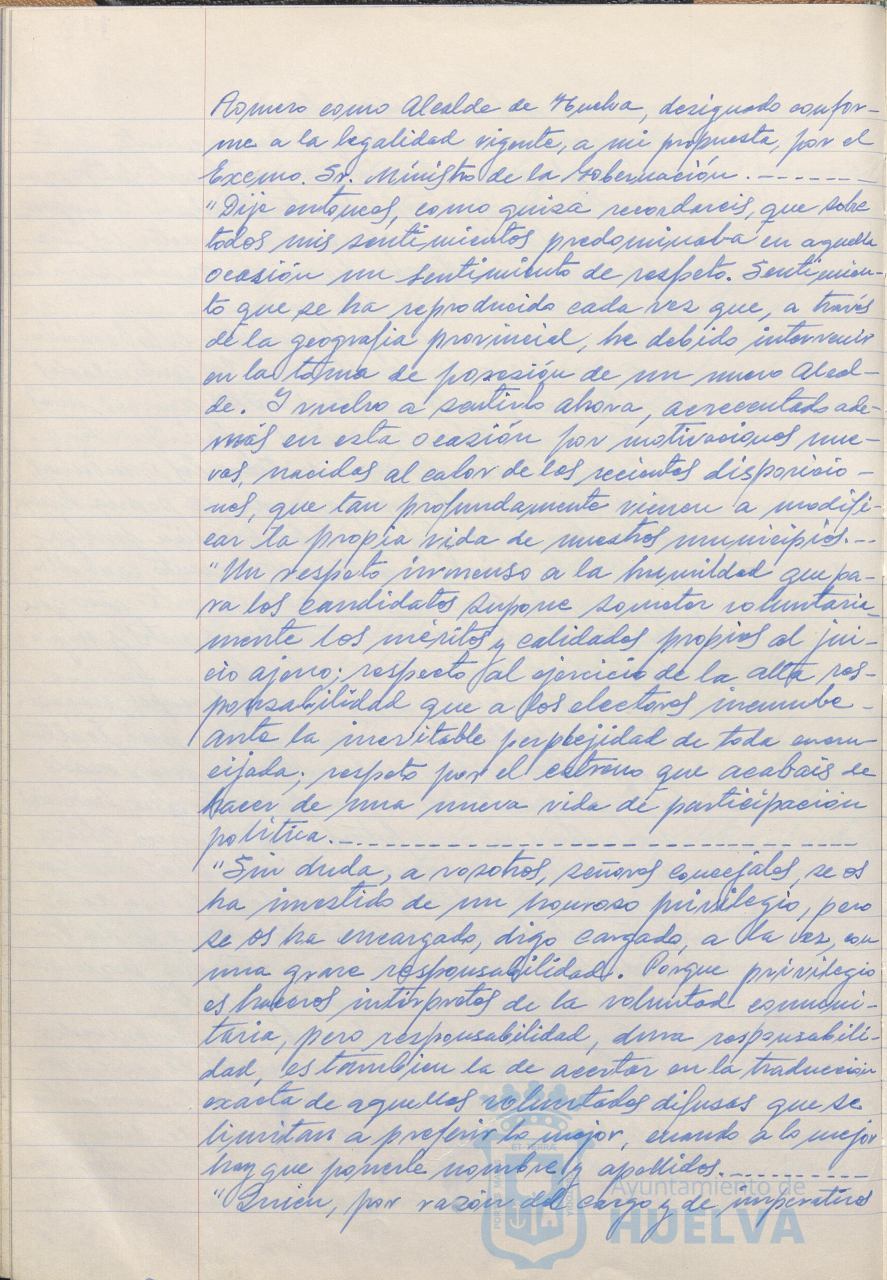 Romero como Alcalde de Huelva, designado confor-
me a la legalidad vigente, a mi propuesta, por el
Excmo. Sr. Ministro de la Gobernación.--------
"Dije entonces, como quizá recordareis, que sobre
todos mis sentimientos predominaba en aquella
ocasión un sentimiento de respeto. Sentimien-
to que se ha reproducido cada vez que, a través
de la geografía provincial, he debido intervenir
en la toma de posesión de un nuevo Alcal-
de. Y vuelvo a sentirlo ahora, acrecentado ade-
más en esta ocasión por motivaciones nue-
vas, nacidas al calor de las recientes disposicio-
nes, que tan profundamente vienen a modifi-
car la propia vida de nuestros municipios.--
"Un respeto inmenso a la humildad que pa-
ra los candidatos supone someter voluntaria-
mente los méritos y calidades propios al jui-
cio ajeno; respecto al ejercicio de la alta res-
ponsabilidad que a los electores incumbe-
ante la inevitable perplejidad de toda encru
cijada; respeto por el estreno que acabais de
hacer de una nueva vida de participación
política.--------------------------------
"Sin duda, a vosotros, señores concejales, se os
ha investido de un honroso privilegio, pero
se os ha encargado, digo cargado, a la vez, con
una grave responsabilidad. Porque privilegio
es haceros intérpretes de la voluntad comuni-
taria, pero responsabilidad, dura responsabili-
dad, es tambien la de acertar en la traducción
exacta de aquellas voluntades difusas que se
limitan a preferir lo mejor, cuando a lo mejor
hay que ponerle nombre y apellidos.----------
"Quien, por razón del cargo y de imperativos
Ayuntamiento de
HUELVA